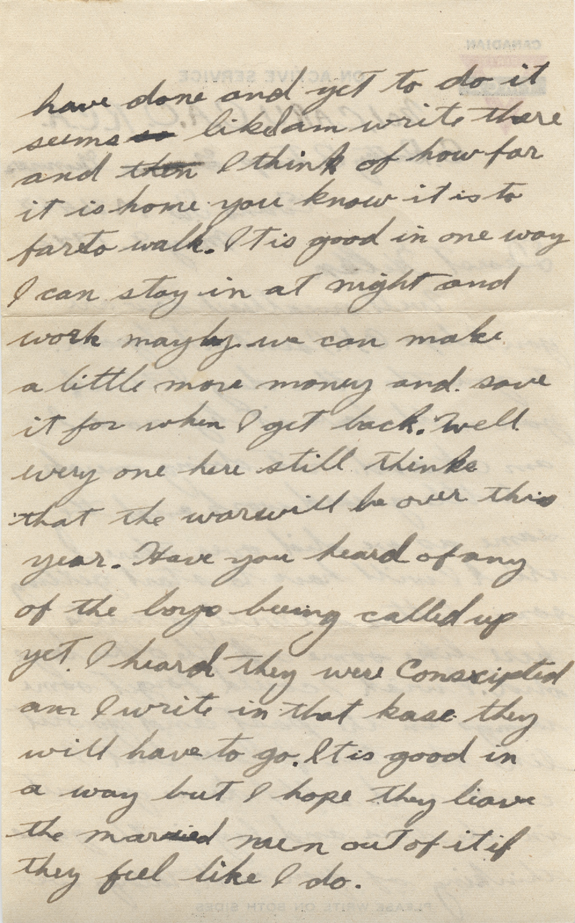 have done and yet to do it
seems so like am write there
and then I think of how far
it is home you know it is to
far to walk. It is good in one way
I can stay in at night and
work mayby we can make
a little more money and save
it for when I get back. Well
every one here still thinks
that the war will be over this
year. Have you heard of any
of the boys being called up
yet. I heard they were Conscripted
am I write in that kase they
will have to go. It is good in
a way but I hope they leave
the married men out of it if
they feel like I do.